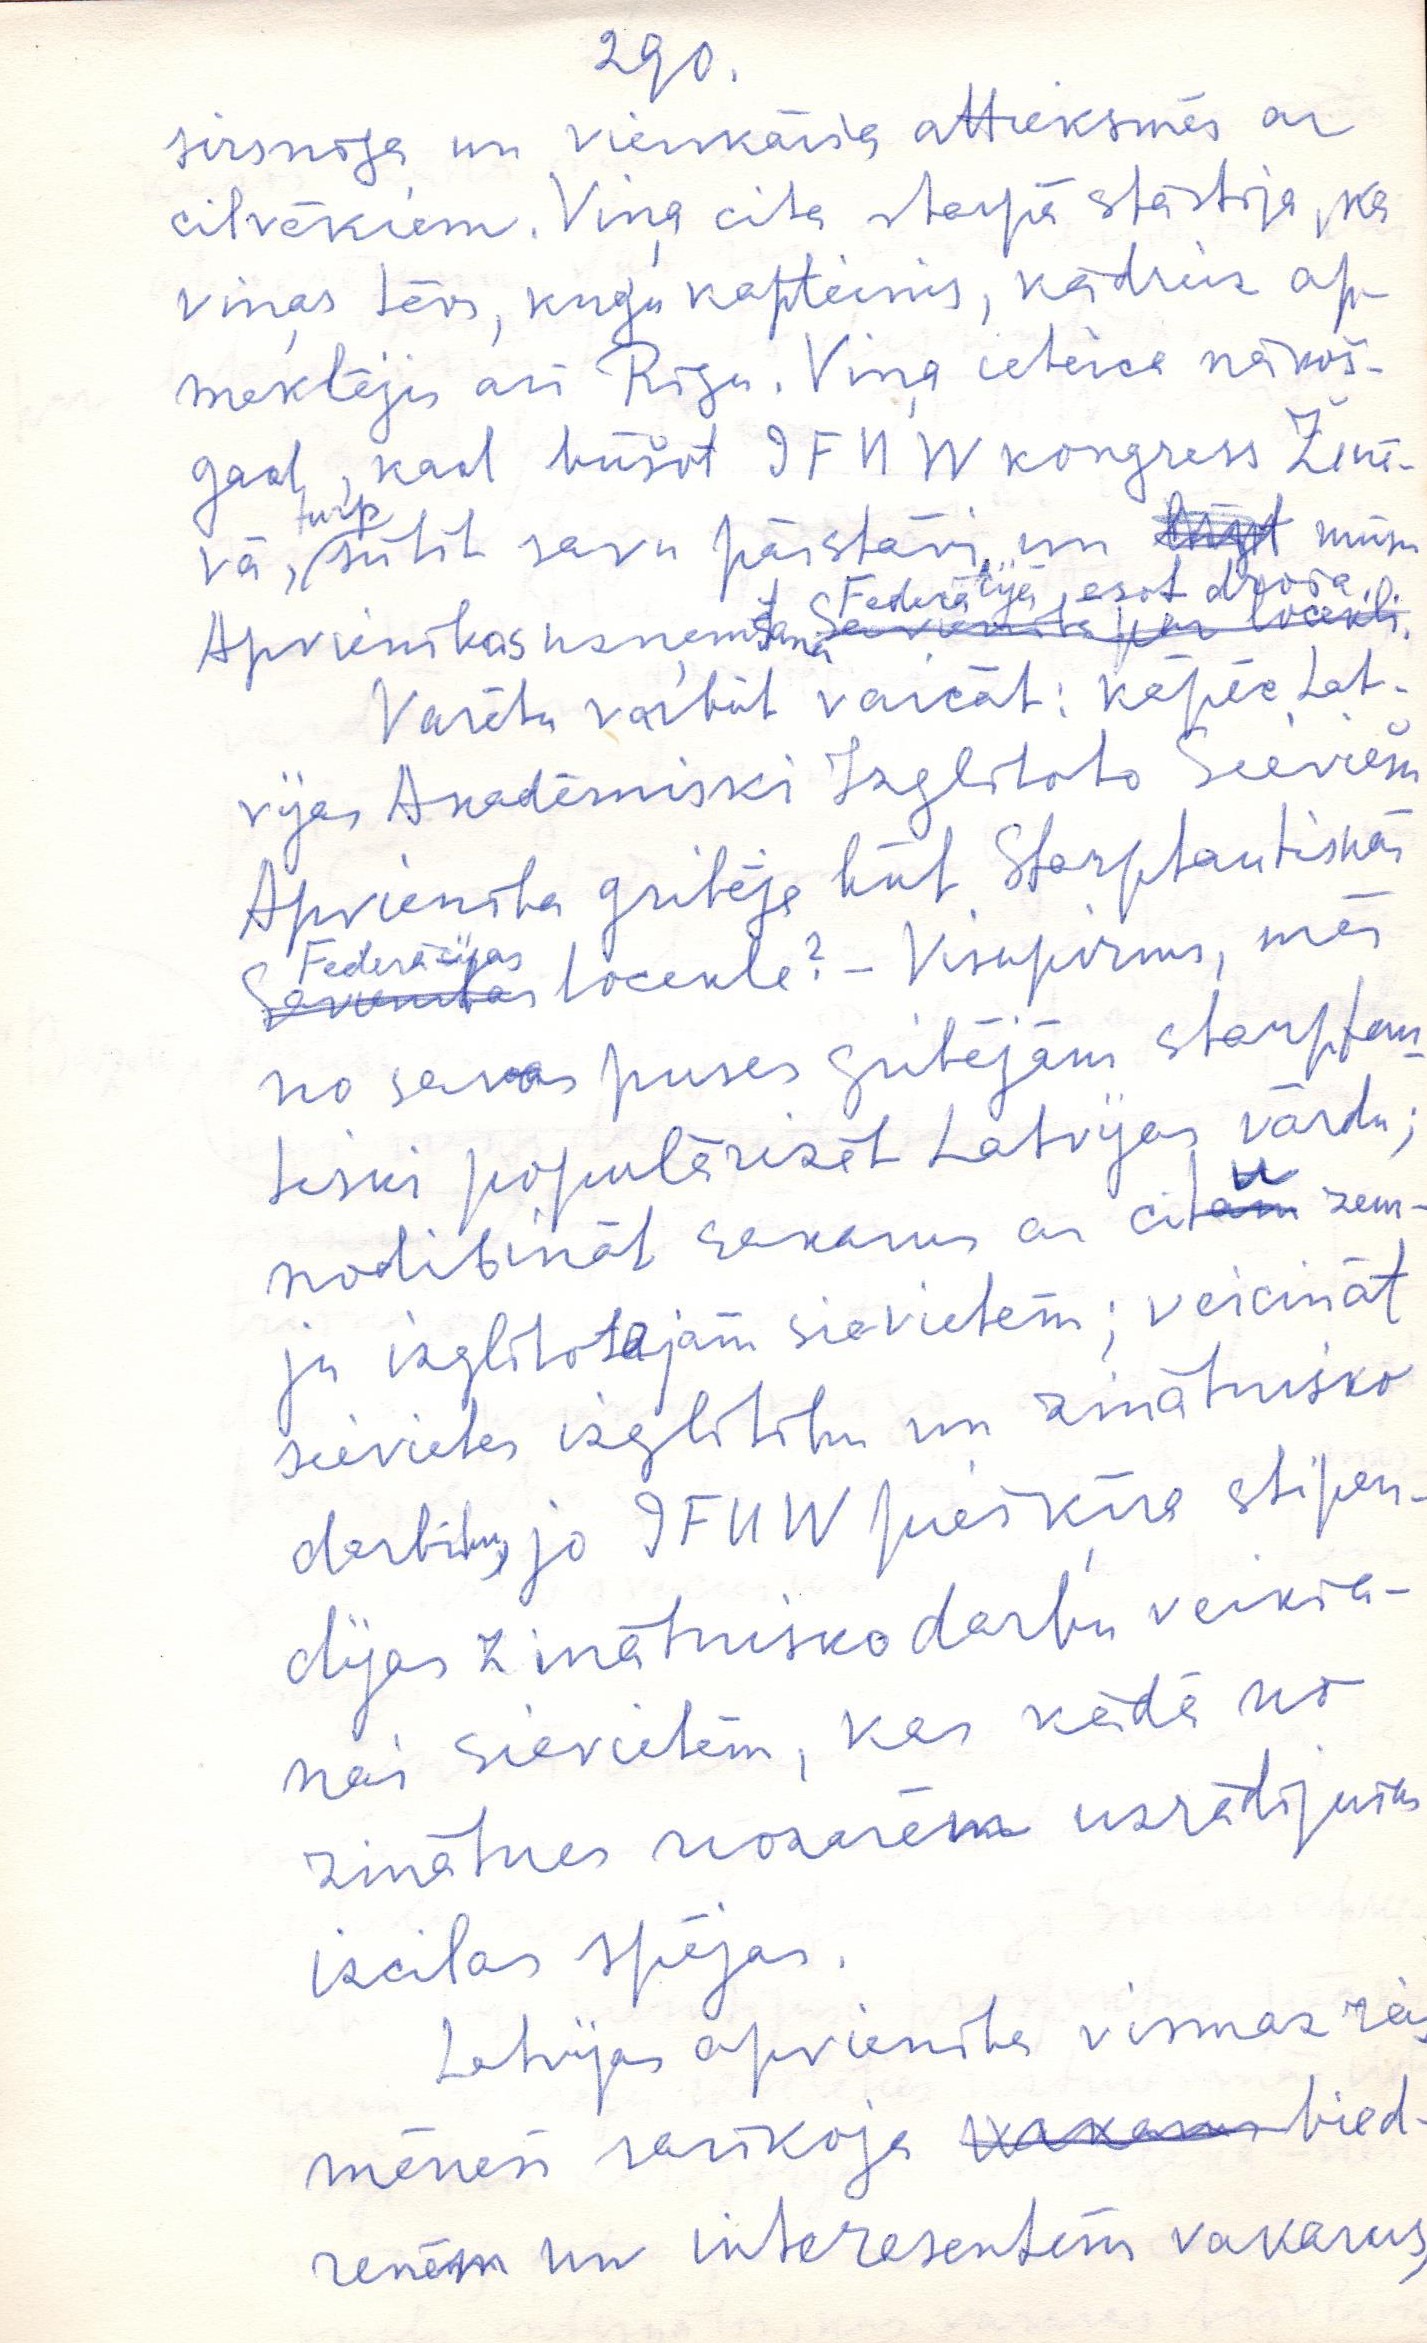 290.
sirsnīga un vienkārša attieksmēs ar
cilvēkiem. Viņa cita starpā stāstīja, ka
viņas tēvs, kuģu kapteinis, kādreiz ap-
meklējis arī Rīgu. Viņa ieteica nākoš-
gad, kad būšot IFUW kongress Ženē-
vā, turp sūtīt savu pārstāvi, un mūsu
Apvienības uzņemšana Federācijā esot droša.
Savienībā par locekli.
Varētu varbūt vaicāt: kāpēc Lat-
vijas Akadēmiski Izglītoto Sieviešu
Apvienība gribēja būt Starptautiskās
Federācijas
Savienības locekle? – Vispirms, mēs
no savas puses gribējām starptau-
tiski popularizēt Latvijas vārdu;
nodibināt sakarus ar citu zem-
ju izglītotajām sievietēm; veicināt
sievietes izglītību un zinātnisko
darbību, jo IFUW piešķīra stipen-
dijas zinātnisko darbu veikša-
nai sievietēm, kas kādā no
zinātnes nozarēm uzrādījušas
izcilas spējas.
Latvijas apvienība vismaz reiz
mēnesī sarīkoja vakarus bied-
renēm un interesentēm vakarus,